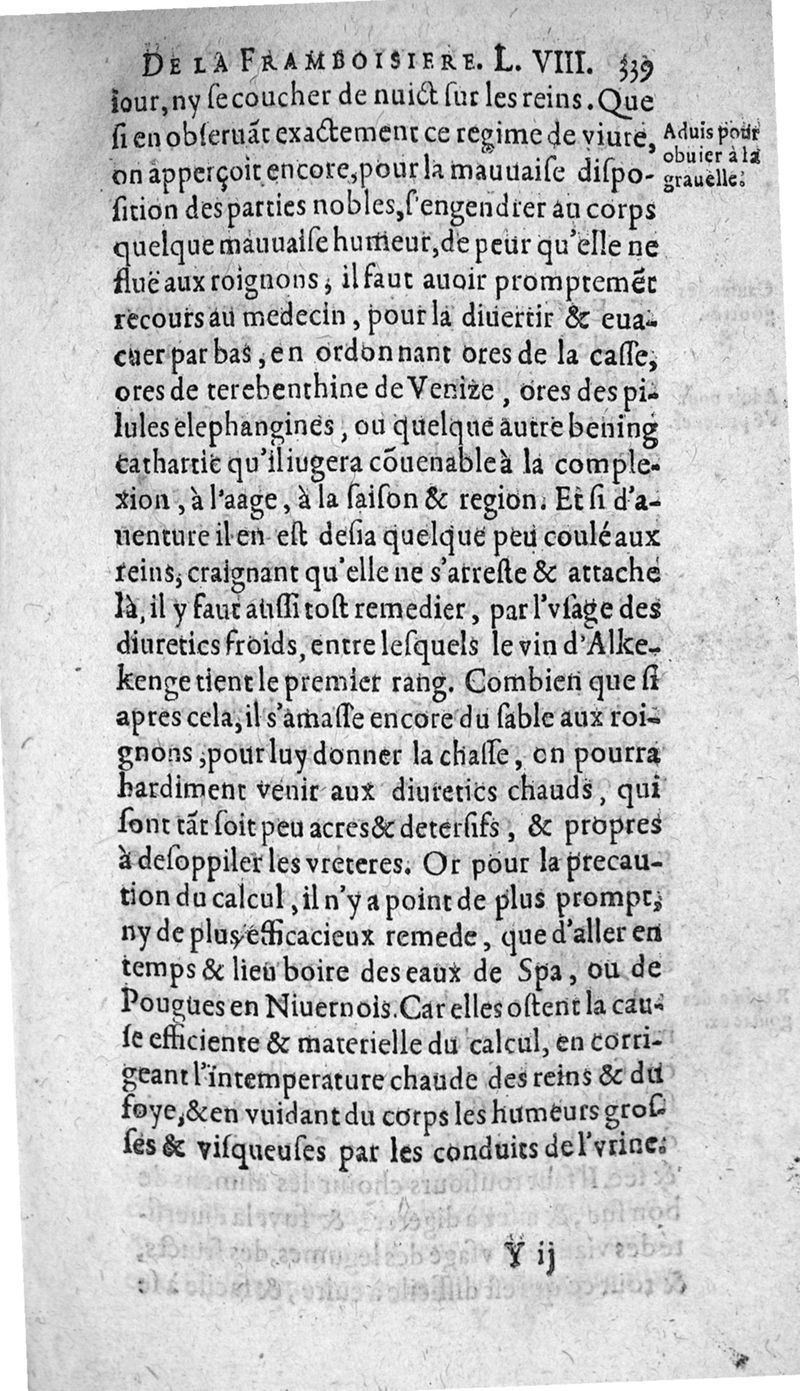 DE LA FRAMBOISIERE. L. VIII. 339
iour, ny ſe coucher de nuict ſur les reins. Que
ſi en obſeruāt exactement ce regime de viure,
Aduis pour
obuier à la
grauelle.
on apperçoit encore, pour la mauuaiſe diſpo-
ſition des parties nobles, s'engendrer au corps
quelque mauuaiſe humeur, de peur qu'elle ne
fluë aux roignons, il faut auoir promptemēt
recours au medecin, pour la diuertir & eua-
cuer par bas, en ordonnant ores de la caſſe,
ores de terebenthine de Venize, ores des pi-
lules elephangines, ou quelque autre bening
cathartic qu'il iugera cōuenable à la comple-
xion, à l'aage, à la ſaiſon & region. Et ſi d'a-
uenture il en eſt deſia quelque peu coulé aux
reins, craignant qu'elle ne s'arreſte & attache
là, il y faut auſſi toſt remedier, par l'vſage des
diuretics froids, entre leſquels le vin d'Alke-
kenge tient le premier rang. Combien que ſi
apres cela, il s'amaſſe encore du ſable aux roi-
gnons, pour luy donner la chaſſe, on pourra
hardiment venir aux diuretics chauds, qui
ſont tāt ſoit peu acres & deterſifs, & propres
à deſoppiler les vreteres. Or pour la precau-
tion du calcul, il n'y a point de plus prompt,
ny de plus efficacieux remede, que d'aller en
temps & lieu boire des eaux de Spa, ou de
Pougues en Niuernois. Car elles oſtent la cau-
ſe efficiente & materielle du calcul, en corri-
geant l'intemperature chaude des reins & du
foye, & en vuidant du corps les humeurs groſ-
ſes & viſqueuſes par les conduits de l'vrine.
Y ij